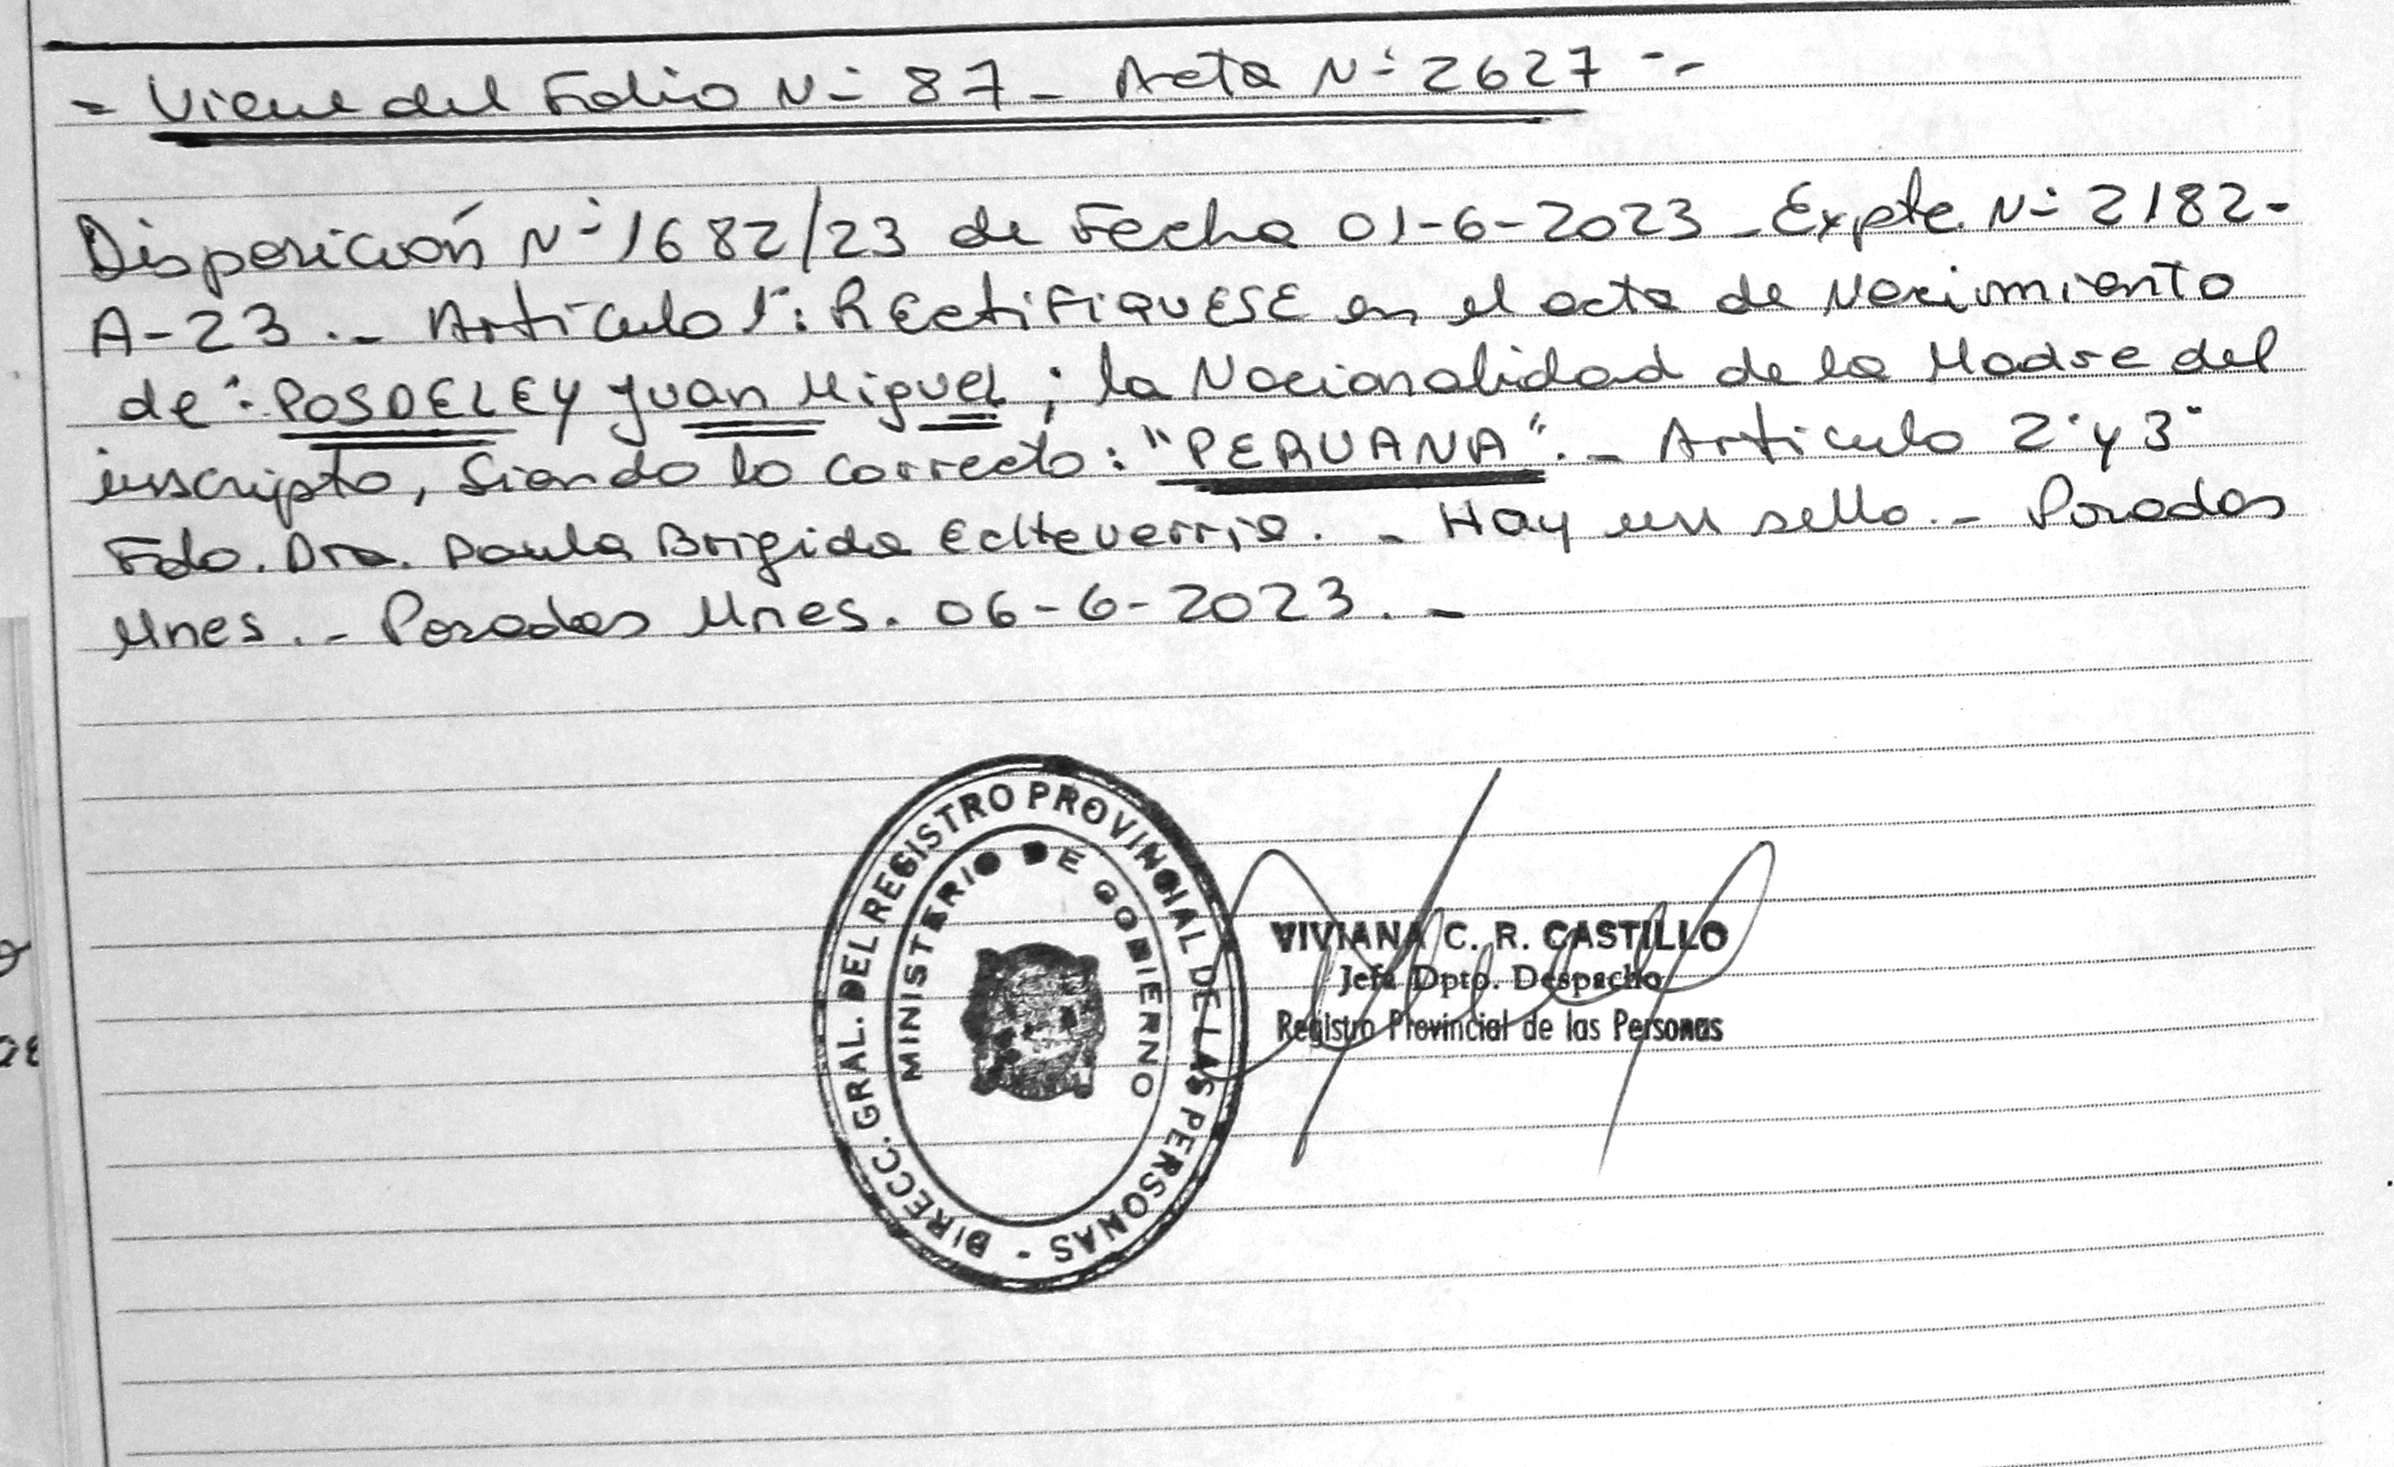 = Viene del Folio N- 87 - Acta N- 2627 --
Disposición N- 1682/23 de Fecha 01-6-2023 - Expte. N- 2182-
A-23.- Artículo 1°: RECtiFiQUESE en el acta de Nacimiento
de: POSDELEY Juan Miguel; la Nacionalidad de la Madre del
inscripto, Siendo lo correcto: "PERUANA".- Artículo 2° y 3°
Fdo. Dra. Paula Brigida Echeverria. - Hay un sello.- Posadas
Mnes.- Posadas Mnes. 06-6-2023.-
DIRECC. GRAL. DEL REGISTRO PROVINCIAL DE LAS PERSONAS -
MINISTERIO DE GOBIERNO
VIVIANA C. R. CASTILLO
Jefa Dpto. Despacho
Registro Provincial de las Personas